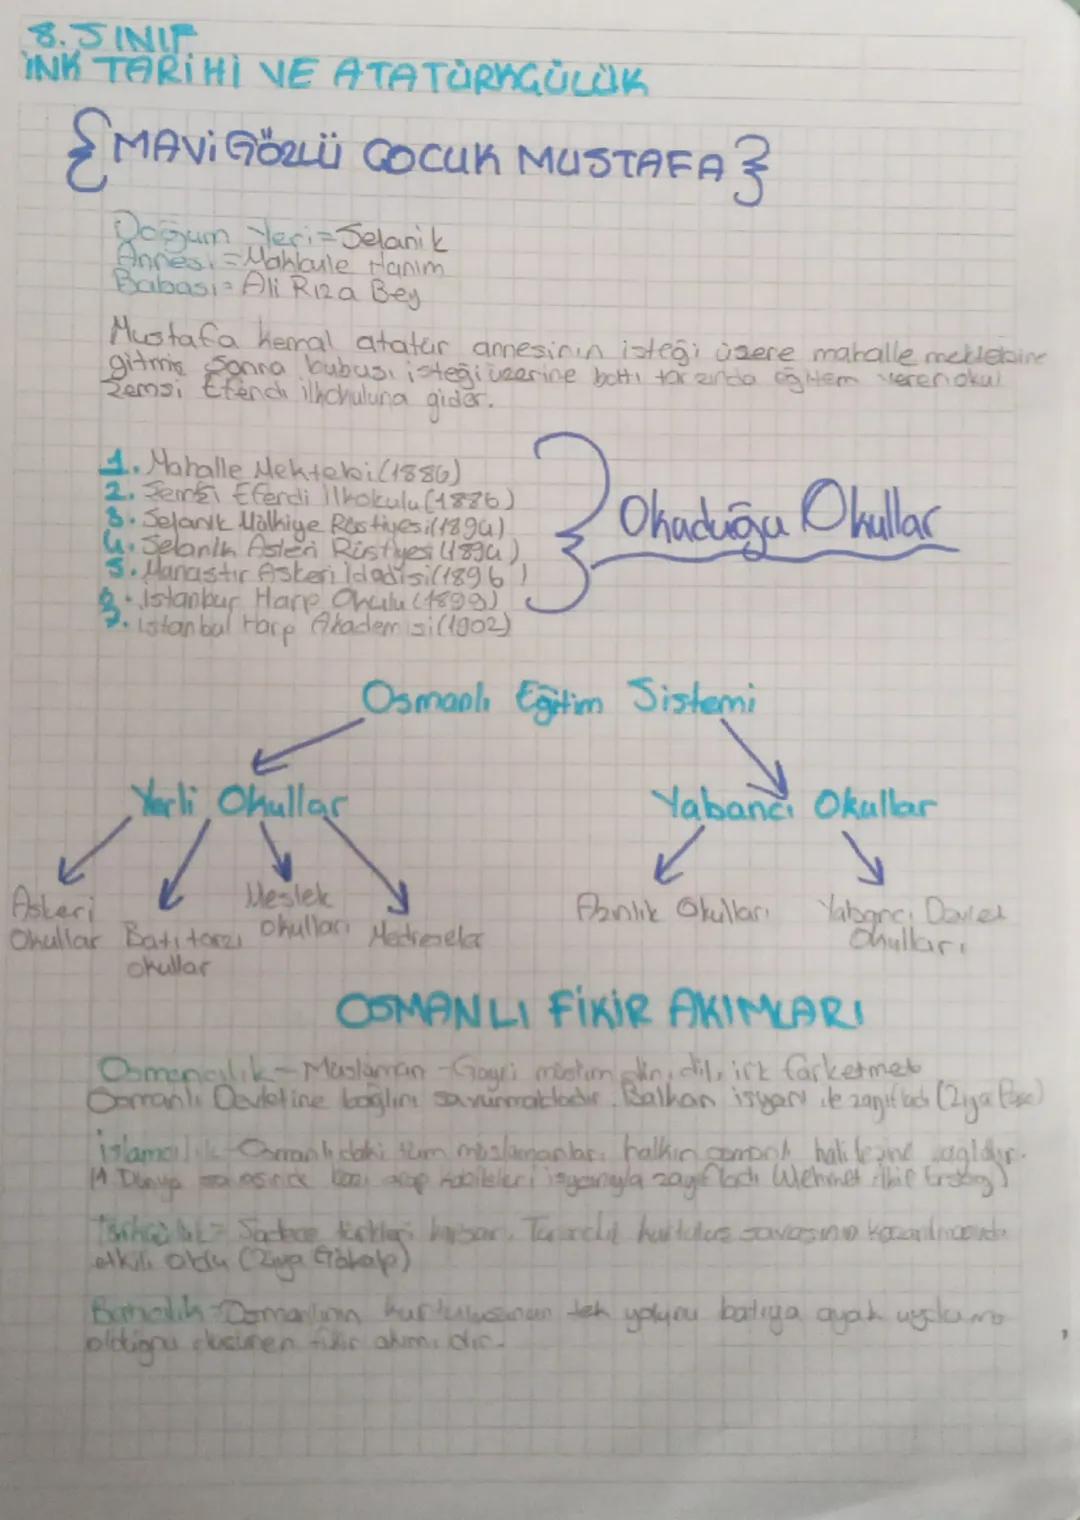 8. SINIF
İNK TARİHİ VE ATATÜRKÇÜLÜK
{MAVİ GÖZLÜ ÇOCUK MUSTAFA}
Doğum Yeri = Selanik
Annesi = Mahbule Hanım
Babası = Ali Rıza Bey
Mustafa kemal atatür annesinin isteği üzere mahalle mektebine
gitmiş Sonra bubası isteği üzerine batı tarzında eğitem veren okul
Şemsi Efendi ilkokuluna gider.
1. Mahalle Mektebi (1886)
2. Şemsi Efendi İlkokulu (1886)
3. Selanik Mülkiye Rüştiyesi (1894)
4. Selanik Askeri Rüştiyesi (1894)
5. Manastır Askeri İdadisi (1896)
İstanbur Harp Okulu (1899)
7. İstanbul Harp Akademisi (1902)
} Okuduğu Okullar
Osmanlı Eğitim Sistemi
Yerli Okullar
Yabancı Okullar
Askeri
Okullar
Batı tarzı
okullar
Meslek
okulları
Medreseler
Azınlık Okulları
Yabancı Devlet
Okulları
OSMANLI FİKİR AKIMLARI
Osmancılık - Müslüman - Gayri müslim din, dil, ırk farketmeb
Osmanlı Devletine bağlını savunmaktadır. Balkan isyanı ile zayıfladı (Ziya Paşa)
İslamcılık - Osmanlıdaki tüm müslümanları halkın osmanlı halifezine
Dünya bazı arap kabileleri isyanıyla zayıfladı Mehmet Akif Ersoy)
Türkçülük = Sadece türkleri kapsar. kurtuluş savaşının kazanılmasında
etkili oldu (Ziya Gökalp)
Batıcılık = Osmanlının kurtuluşunun tek yolunu batıya ayak uydurma
olduğnu düşünen fikir akımıdır.